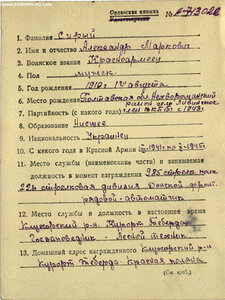 FORUMS-SU.COM
Орденская книжка
Удостоверение
№ А-713022
1. Фамилия Сирый
2. Имя и отчество Александр Маркович
3. Воинское звание Красноармеец
4. Пол мужск.
5. Год рождения 1912 1го августа
6. Место рождения Полтавская обл. Нехворощанский
район село Ливенское
7. Партийность (с какого года) член ВКП(б) с 1943 г.
8. Образование Низшее
9. Национальность Украинец
10. С какого года в Красной Армии 1941 по 1945 г.
11. Место службы (наименование части) и занимаемая
должность в момент награждения 985 стрелк. полк
226 стрелковая дивизия Донской фронт.
рядовой-автоматчик
12. Место службы и должность в настоящее время
Клухорский р-н. Курорт Теберда
Госзаповедник. Лесной техник
13. Домашний адрес награжденного Клухорский р-н
Курорт Теберда-Красная поляна
(См. на об.)